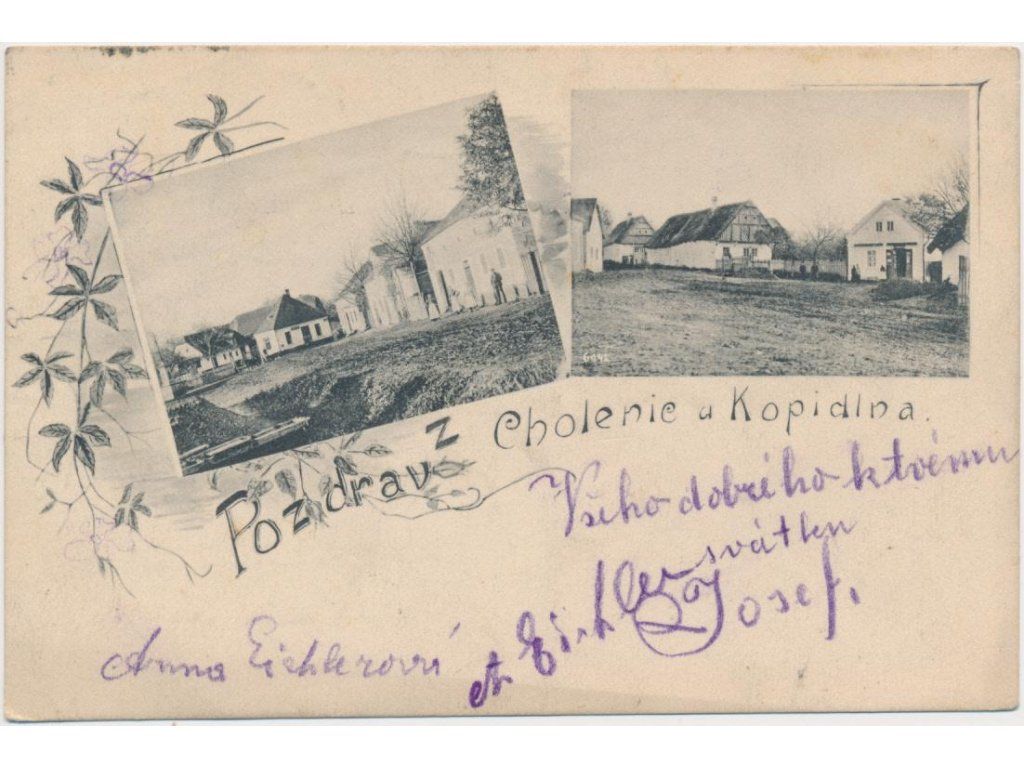 6092
Pozdrav z Cholenic u Kopidlna.
Všeho dobrého k tvému
svátku
Josef.
A Eichler
Anna Eichlerová